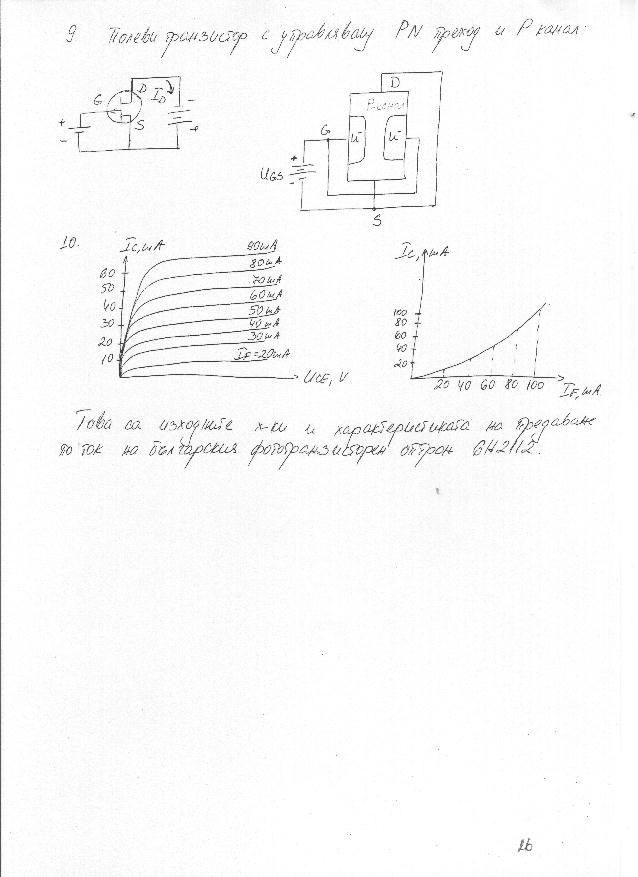 9 Полеви транзистор с управляващ PN преход и P канал:
G D ID - + S + -
D
P канал
G n- n-
+ UGS -
S
10. IC, mA
60 50 40 30 20 10
90mA
80mA
70mA
60mA
50mA
40mA
30mA
IF=20mA
UCE, V
IC, mA
100
80
60
40
20
20 40 60 80 100
IF, mA
Това са изходните х-ки и характеристиката на предаване
по ток на българския фототранзисторен оптрон 6H2112.
26